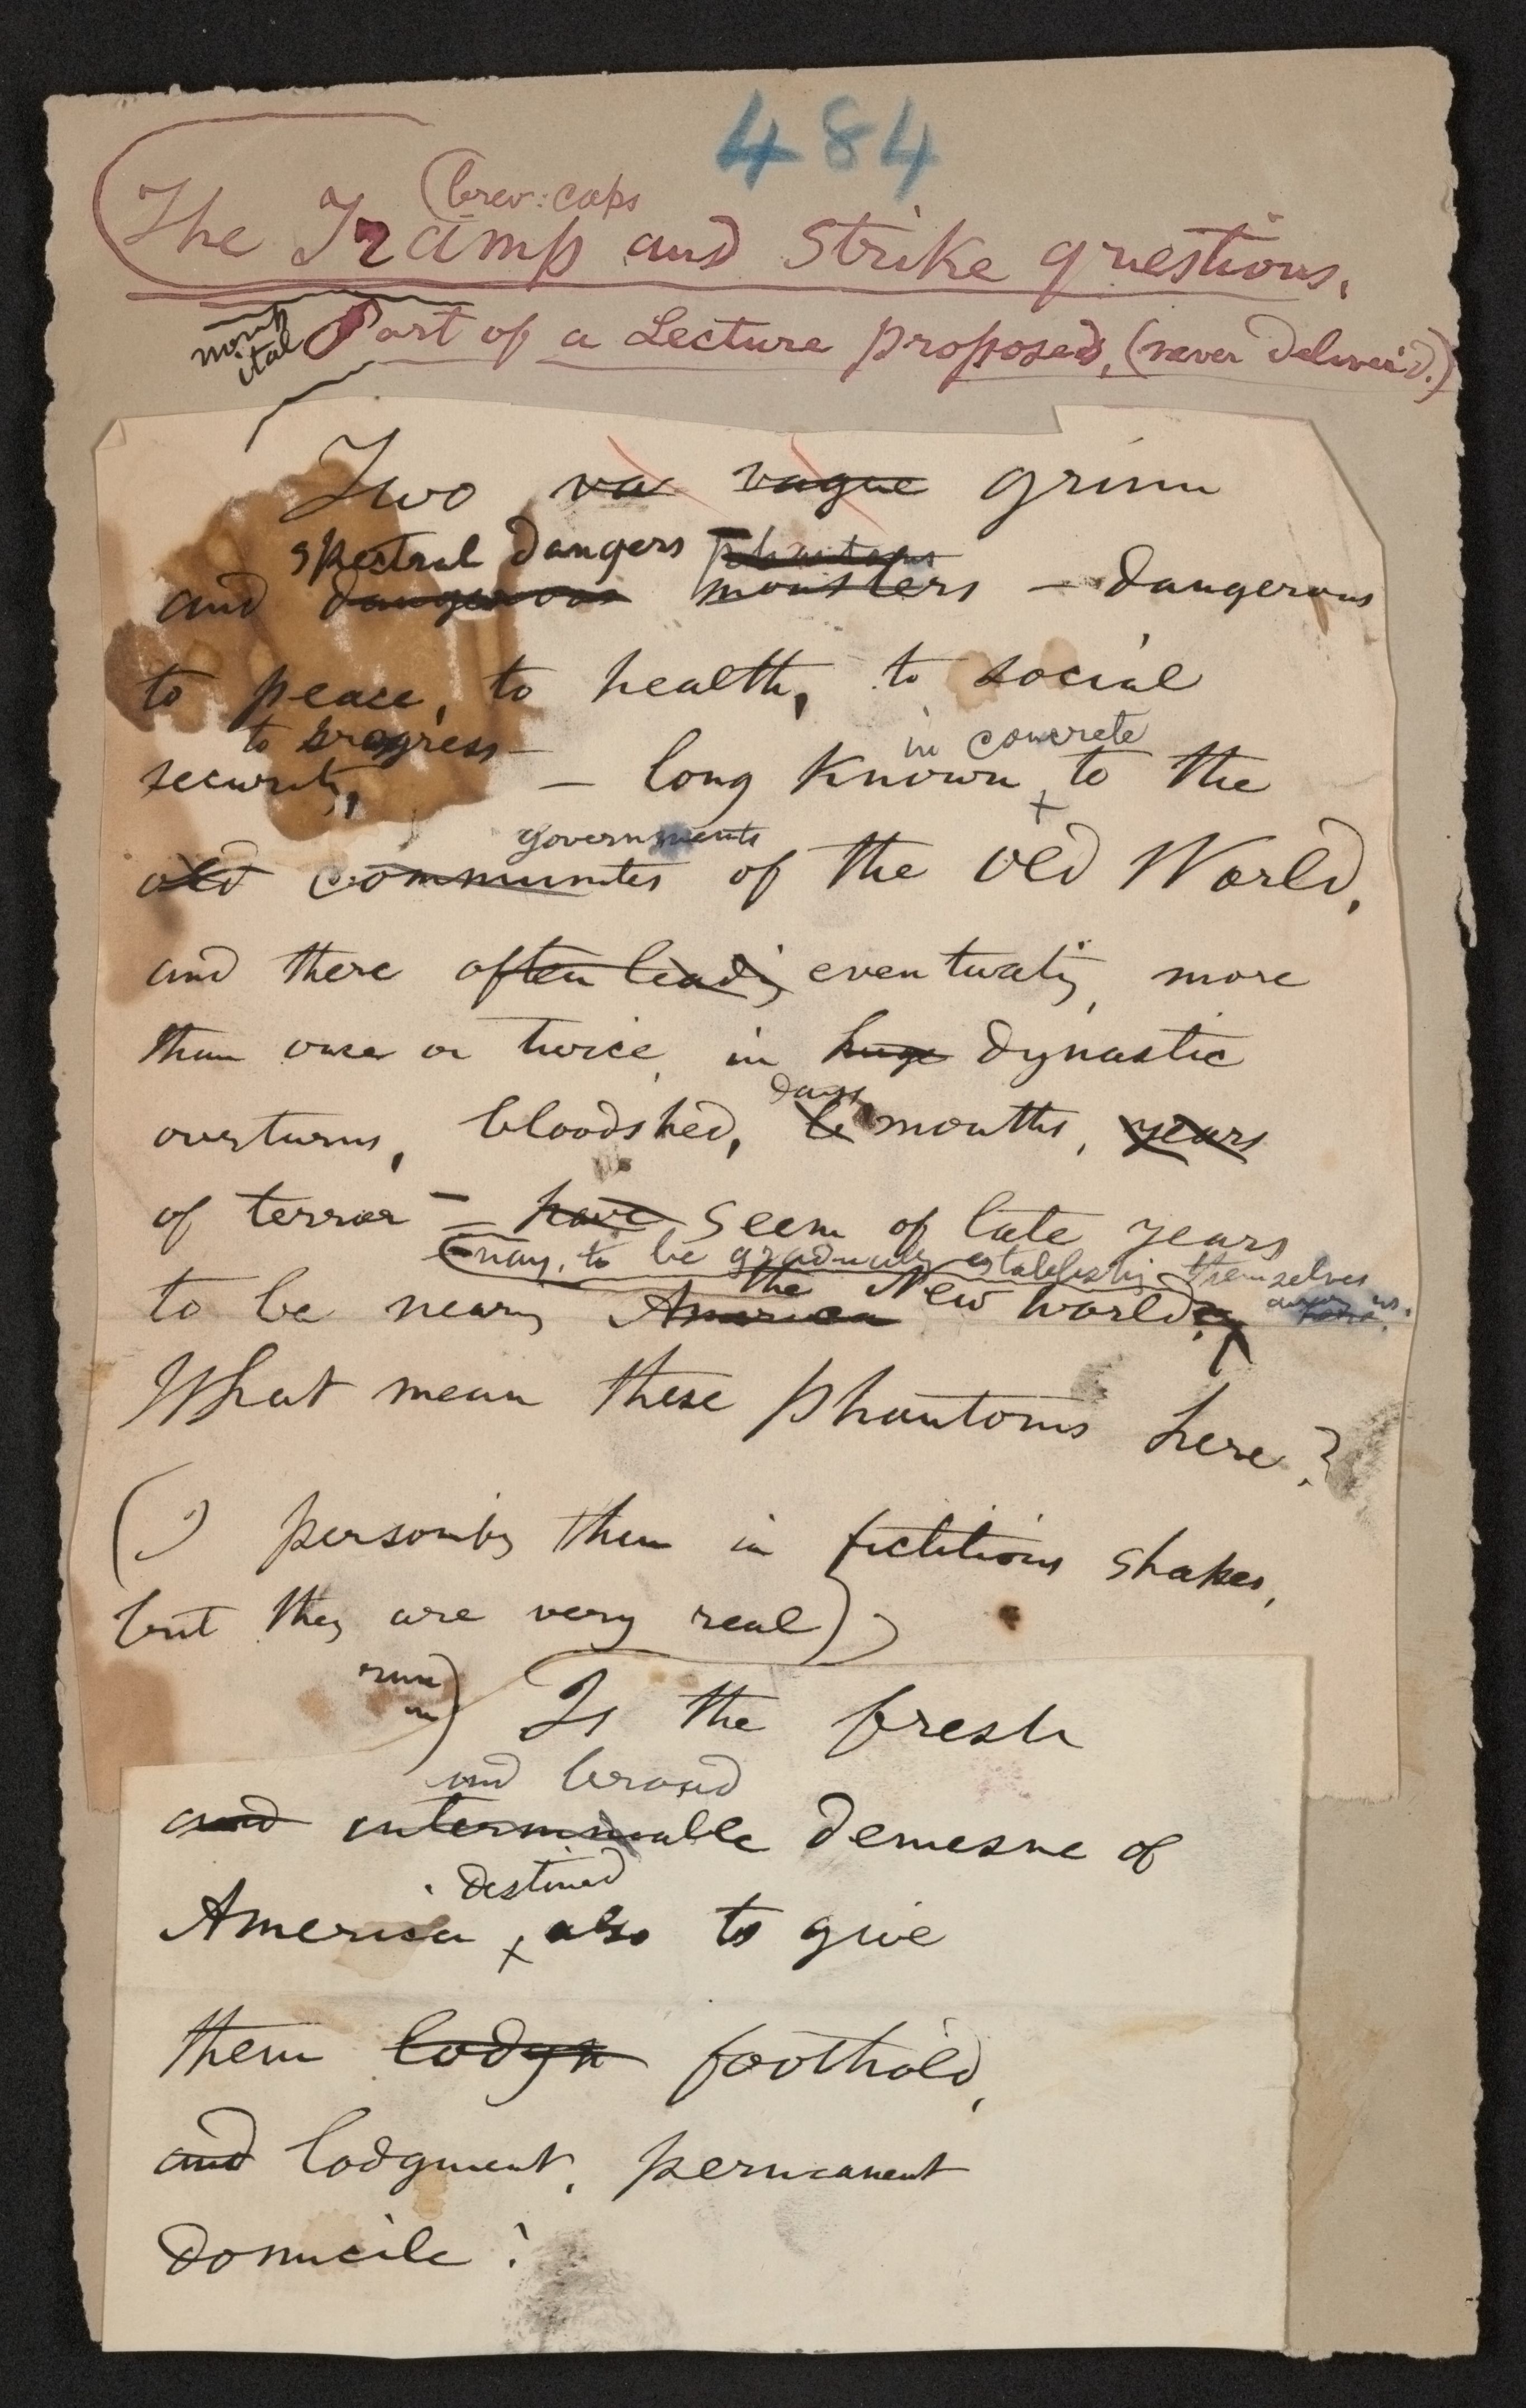 484
(brev: caps
The Tramp and Strike questions.
nonp
ital
Part of a Lecture proposed, (never deliver'd.)
Two va vague grim
spectral dangers phantoms
and dangerous monsters — dangerous
to peace, to health, to social
to progress — in concrete
security, — long known, to the
governments
old communities of the Old World,
and there often leadig eventuatig, more
than once or twice, in huge dynastic
days
overturns, bloodshed, be months, years
of terror — have seem of late years
nay, to be gradually establishig themselves
among us.
to be nearig America the New World,
What mean these phantoms here?
(I personify them in fictitious shapes,
but they are very real)
run
on) Is the fresh
and broad
and interminable demesne of
destined
America, also to give
them lodgn foothold,
and lodgment, permanent
domicile?